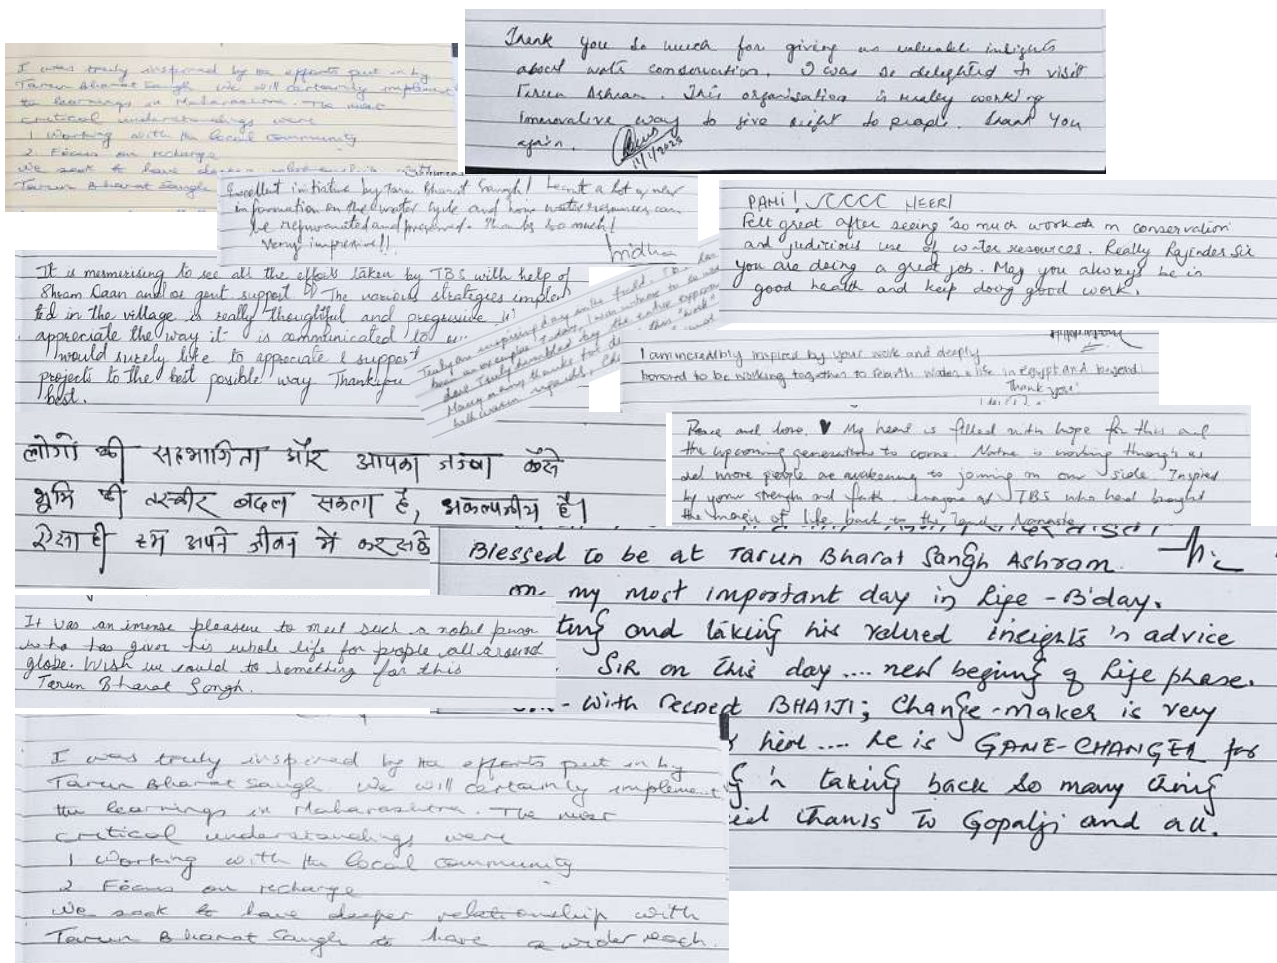 I was truly inspired by the efforts put in by
Tarun Bharat Sangh We will certainly implement
the learnings in Maharashtra. The most
critical understandings were
1 Working with the local community
2 Focus on recharge
We seek to have deeper relationship with
Tarun Bharat Sangh
Thank you so much for giving us valuable insights
about water conservation. I was so delighted to visit
Tarun Ashram. This organisation is really working
innovative way to give right to people. Thank You
again.
11/1/2023
Excellent initiative by Tarun Bharat Sangh! Learnt a lot of new
information on the water cycle and how water resources can
be rejuvenated and preserved. Thanks so much!
Very impressive!!
PANI! NEER!
Felt great after seeing so much work on conservation
and judicious use of water resources. Really Rajinder Sir
you are doing a great job. May you always be in
good health and keep doing good work.
It is mesmerising to see all the efforts taken by TBS with help of
Shram Daan and no govt. support! The various strategies implemen
ted in the village is really thoughtful and progressive
appreciate the way it is communicated to
would surely like to appreciate & support
projects to the best possible way Thankyou
best.
Truly an inspiring day in the field. TBS has
been an exemplar
Truly humbled by the entire
Many many thanks for
I am incredibly inspired by your work and deeply
honored to be working together to rebirth water & life in Egypt and beyond
Thank you!
Peace and love. ♥ My heart is filled with hope for this and
the upcoming generations to come. Nature is working through us
and more people are awakening to joining on our side. Inspired
by your strength and faith. everyone at TBS who had brought
the magic of life back to the land Namaste
लोगों की सहभागिता और आपका जज्बा कैसे
भूमि की तस्वीर बदल सकता है, अकल्पनीय है।
ऐसा ही हम अपने जीवन में कर सके
Blessed to be at Tarun Bharat Sangh Ashram
on my most important day in life - B'day.
ting and taking his valued insights 'n advice
SIR on this day .... new begining of life phase.
- With respect BHAIJI; Change-maker is very
here .... he is GAME-CHANGER for
g 'n taking back so many thing
Thanks to Gopalji and all.
It was an imense pleasure to meet such a nobel person
who has given his whole life for people all around
globe. Wish we could to something for this
Tarun Bharat Songh.
I was truly inspired by the efforts put in by
Tarun Bharat Sangh We will certainly implement
the learnings in Maharashtra. The most
critical understandings were
1 Working with the local community
2 Focus on recharge
We seek to have deeper relationship with
Tarun Bharat Sangh to have a wider reach.